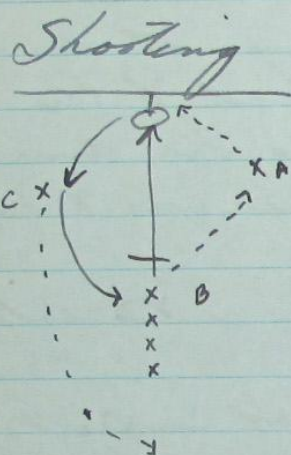 Shooting
x A
C x
x B
x
x
x